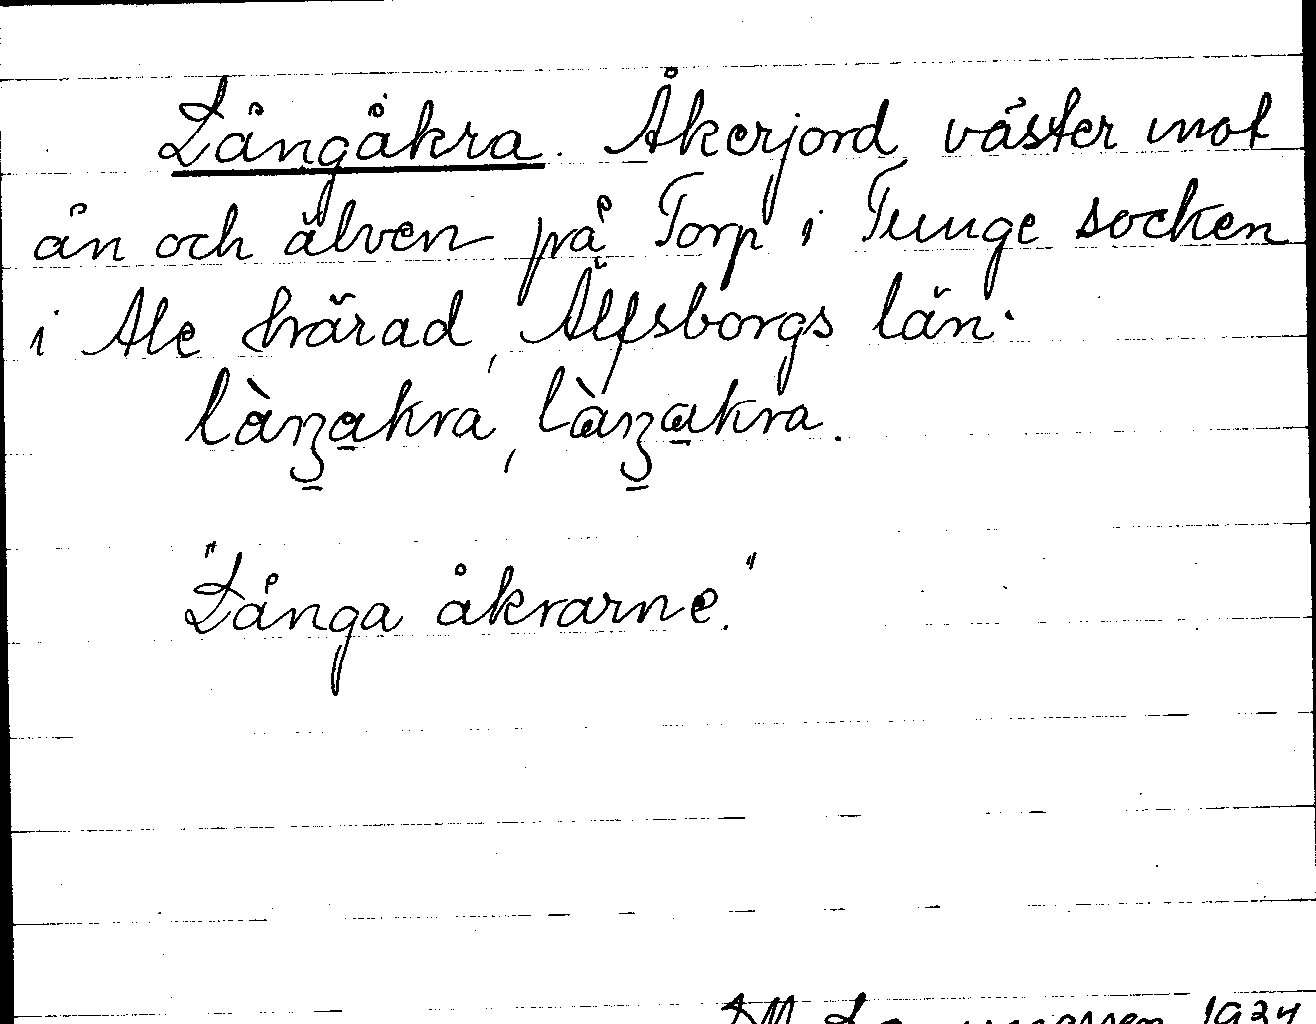 Långåkra. Åkerjord väster mot
ån och älven på Torp i Tunge socken
i Ale härad, Älfsborgs län.
làŋakra, làŋakra.
"Långa åkrarne."
1924